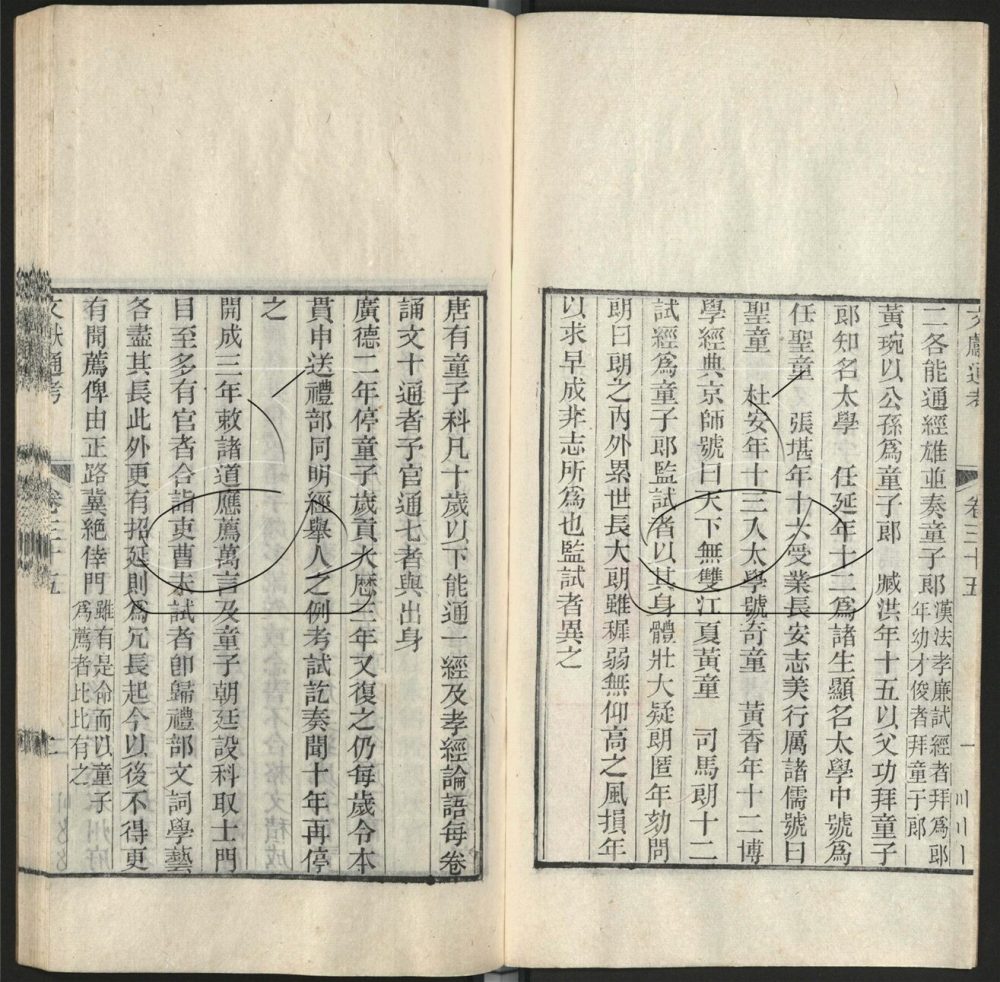 文獻通考 卷三十五 一
二各能通經雄並奏童子郎漢法孝廉試經者拜爲郎年幼才俊者拜童子郎
黃琬以公孫爲童子郎 臧洪年十五以父功拜童子
郎知名太學 任延年十二爲諸生顯名太學中號爲
任聖童 張堪年十六受業長安志美行厲諸儒號曰
聖童 杜安年十三入太學號奇童 黃香年十二博
學經典京師號曰天下無雙江夏黃童 司馬朗十二
試經爲童子郎監試者以其身體壯大疑朗匿年劾問
朗曰朗之內外累世長大朗雖穉弱無仰高之風損年
以求早成非志所爲也監試者異之
唐有童子科凡十歲以下能通一經及孝經論語每卷
誦文十通者予官通七者與出身
廣德二年停童子歲貢大歷三年又復之仍每歲令本
貫申送禮部同明經舉人之例考試訖奏聞十年再停
之
開成三年敕諸道應薦萬言及童子朝廷設科取士門
目至多有官者合詣吏曹未試者卽歸禮部文詞學藝
各盡其長此外更有招延則爲冗長起今以後不得更
有聞薦俾由正路冀絕倖門雖有是命而以童子爲薦者比比有之
文獻通考 卷三十五